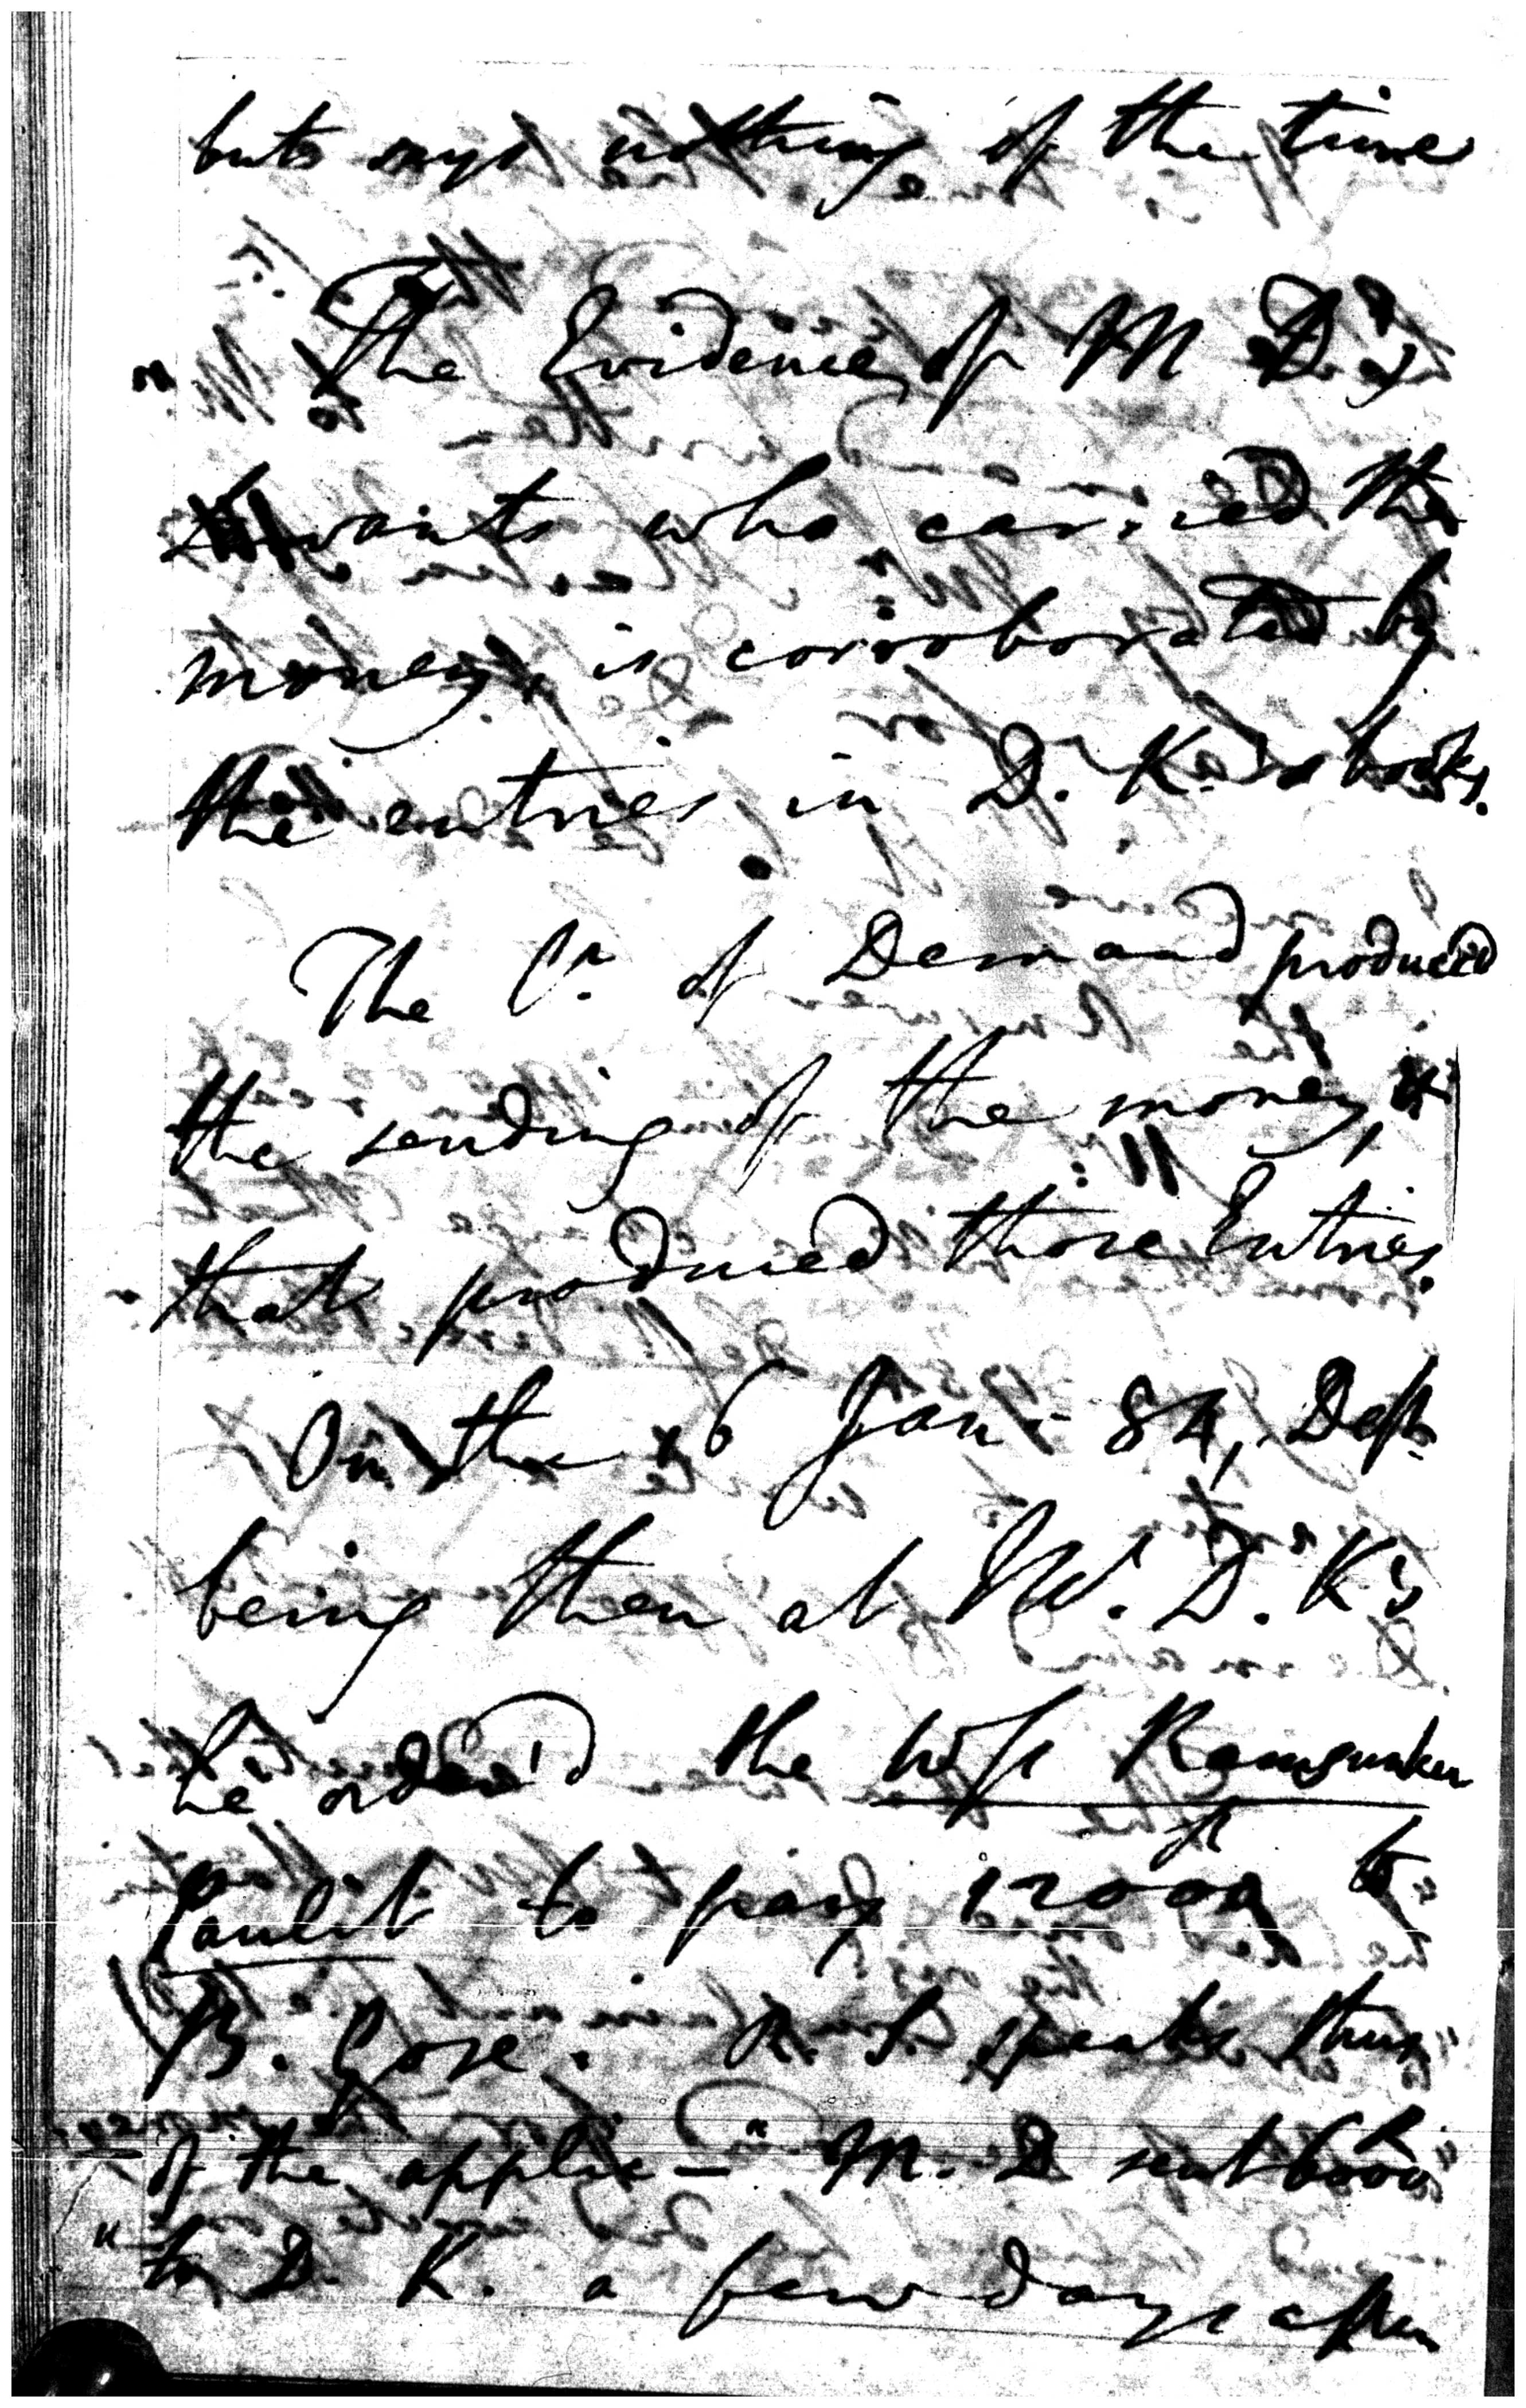 but says nothing of the time
The Evidence of M D's
servants who carried the
money, is corroborated by
the entries in D. K.'s books.
The Cr. of Demand produced
the sending of the money, &
that produced those Entries.
On the 16 Jan - 84, Deft
being then at W. D. K's
he order'd the
to pay 12000 to
B. Gose. R. S. speaks thus
of the applic - "M. D. sent 6000
"to D. K. a few days after